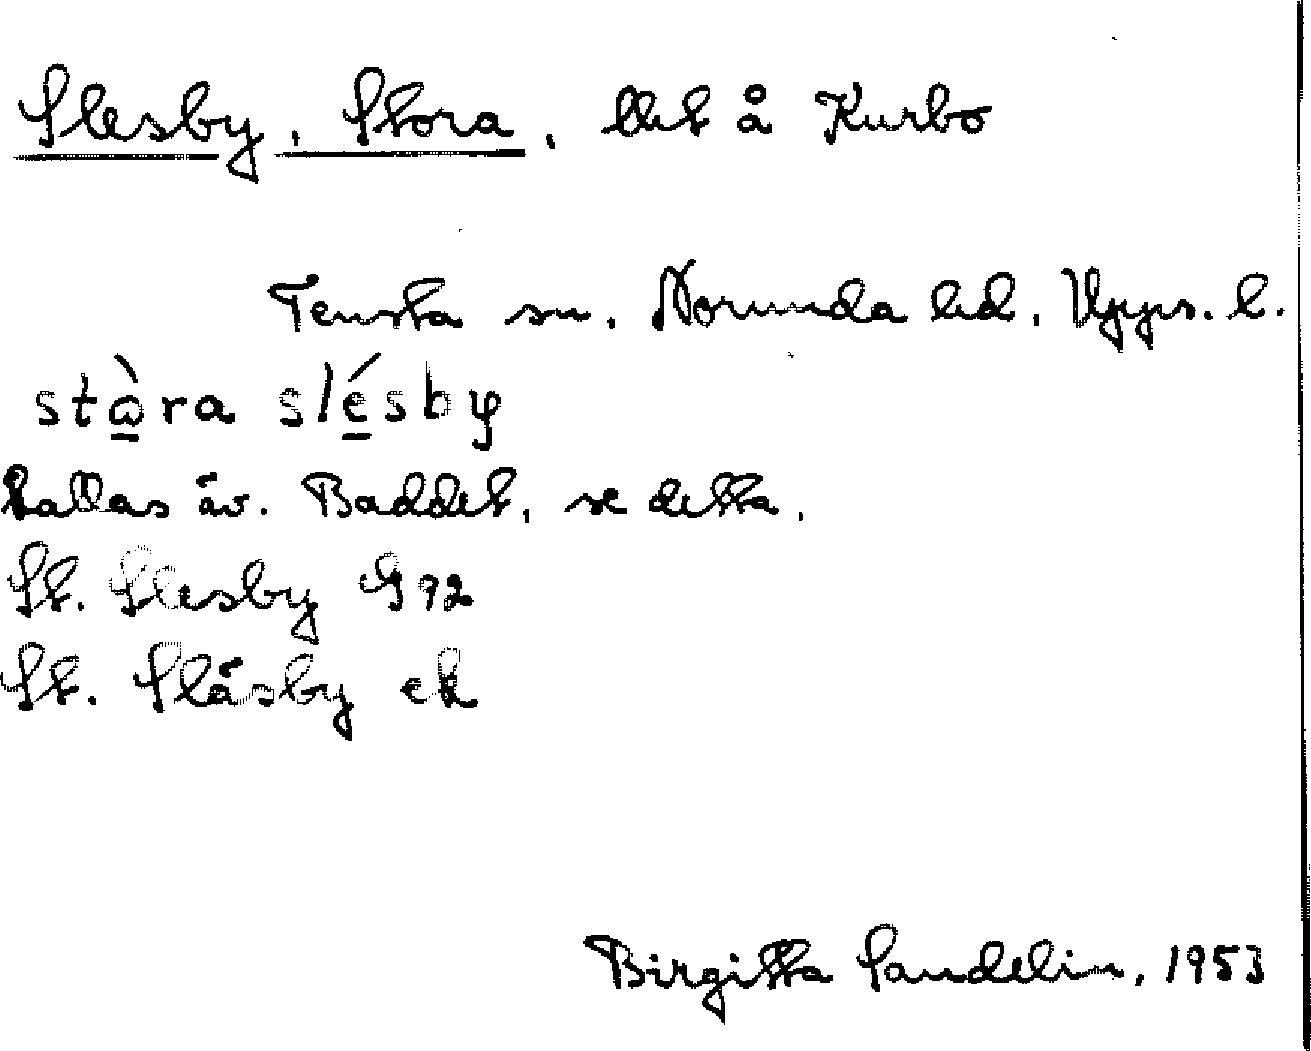 Slesby, Stora, llht å Kurbo
Tensta sn. Norunda hd. Upps. l.
stὼra slésby
kallas äv. Baddet, se detta.
St. Slesby G 92
St. Släsby ek
Birgitta Sandelin, 1953